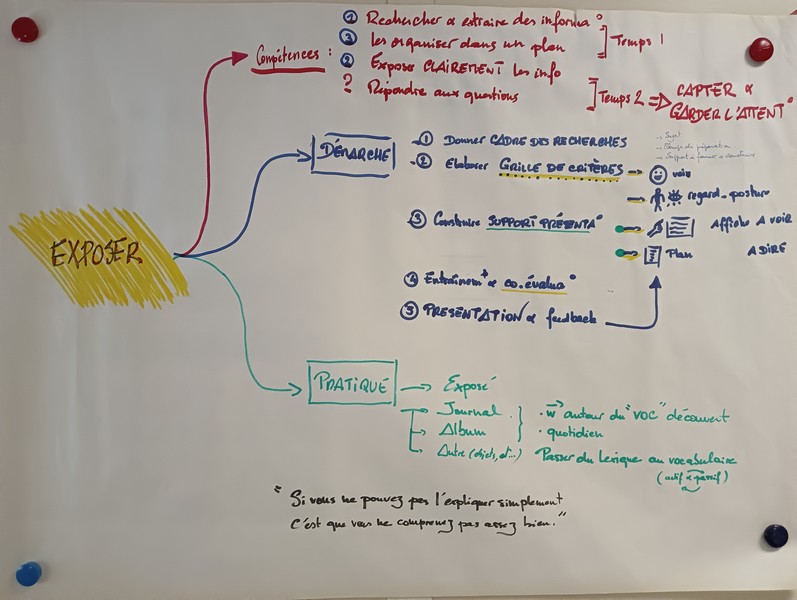 ① Rechercher & extraire des informa°
③ les organiser dans un plan
Temps 1
Compétences :
② Exposer CLAIREMENT les info
? Répondre aux questions
Temps 2 => CAPTER &
GARDER L'ATTENT°
DÉMARCHE
① Donner CADRE DES RECHERCHES
→ Sujet
→ Temps de préparation
② Elaborer GRILLE DE CRITÈRES → voix
→ regard - posture
③ Construire SUPPORT PRÉSENTA°
Affiche A VOIR
Plan A DIRE
EXPOSER
④ Entraînemt & co.évalua°
⑤ PRESENTATION & feedback
PRATIQUE
→ Exposé
→ Journal
→ Album
→ Autre (objets, et...)
• w autour du "VOC" découvert
• quotidien
Passer du lexique au vocabulaire
(actif & passif)
"Si vous ne pouvez pas l'expliquer simplement
C'est que vous ne comprenez pas assez bien."